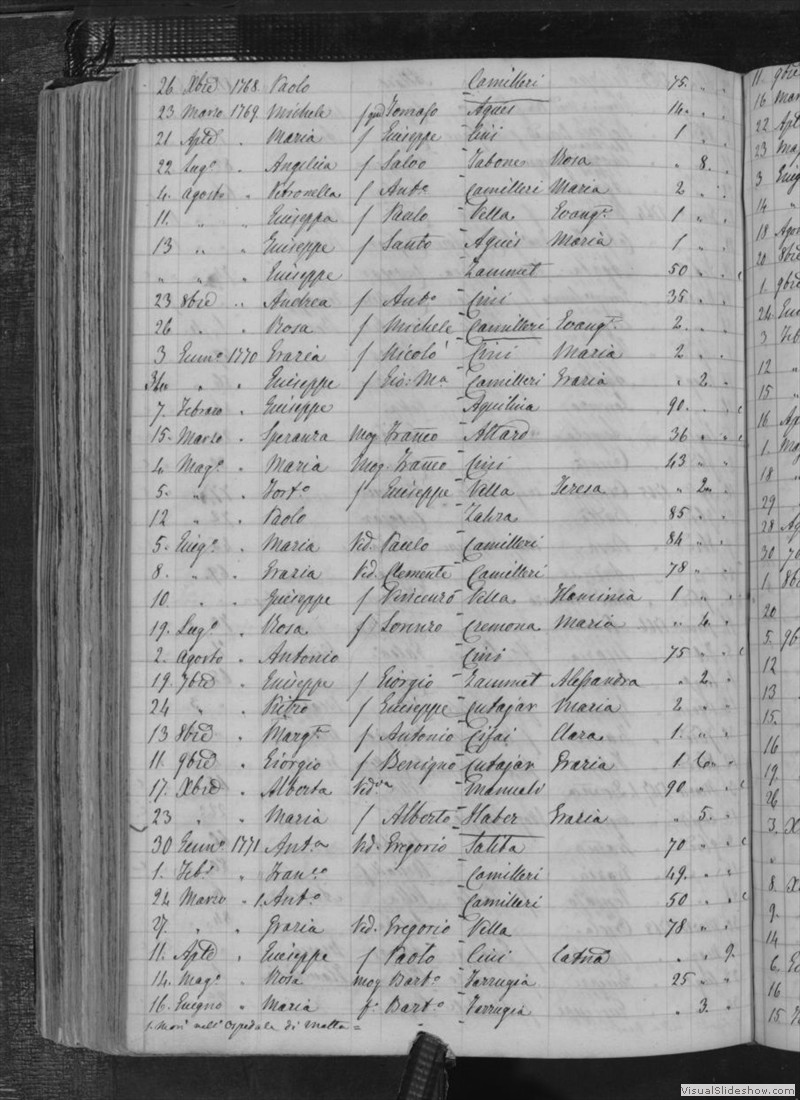 26 Xbre 1768 Paolo Camilleri 75 " "
23 Marzo 1769 Michele f qm Tomaso Agius 14 " "
21 Aple " Maria f Giuseppe Cini 1 " "
22 Lugo " Angelica f Salvo Tabone Rosa " 8 "
4 Agosto " Petronella f Anto Camilleri Maria 2 " "
11 " " Giuseppa f Paulo Vella Evanga 1 " "
13 " " Giuseppe f Santo Agius Maria 1 " "
" " " Giuseppe Zammit 50 " "
23 8bre " Andrea f Anto Cini 35 " "
26 " " Rosa f Michele Camilleri Evanga 2 " "
3 Genno 1770 Grazia f Nicolò Cini Maria 2 " "
" " Giuseppe f Gio: Ma Camilleri Grazia " 2 "
7 Febraro " Giuseppe Aquilina 90 " "
15 Marzo " Speranza mog Franco Attard 36 " "
4 Mago " Maria Mog Franco Cini 43 " "
5 " " Forto f Giuseppe Vella Teresa " 2 "
12 " " Paolo Zahra 85 " "
5 Giugo " Maria Vid. Paulo Camilleri 84 " "
8 " " Grazia Vid. Clemente Camilleri 78 " "
10 " " Giuseppe f Vincenzo Vella Flaminia 1 " "
19 Lugo " Rosa f Lorenzo Cremona Maria " 4 "
2 Agosto " Antonio Cini 75 " "
19 7bre " Giuseppe f Giorgio Zammit Alessandra " 2 "
24 " " Pietro f Giuseppe Cutajar Maria 2 " "
13 8bre " Margta f Antonio Cifai Clara 1 " "
11 9bre " Giorgio f Benigno Cutajar Grazia 1 6 "
17 Xbre " Alberta Vidva Emanueli 90 " "
23 " " Maria f Alberto Haber Grazia " 5 "
30 Genno 1771 Anta Vid. Gregorio Saliba 70 " "
1 Febo " Franca Camilleri 49 " "
24 Marzo " 1 Anto Camilleri 50 " "
27 " " Grazia Vid. Gregorio Vella 78 " "
11 Aple " Giuseppe f Paolo Cini Catna " " 9
14 Mago " Rosa mog Barto Farrugia 25 " "
16 Giugno " Maria f Barto Farrugia " 3 "
1 Morì nell'Ospedale di Malta =
11 9bre
16 Mar
22 Aple
23 Mag
3 Giug
14 "
18 Agos
20 8bre
1 9bre
24 Gen
3 Feb
12 "
15 "
16 Ap
1 Ma
18 "
29
28 Ag
30 7b
1 8b
20
5 9b
12
13
15
16
19
26
3 X
"
8 X
9
14
6
16
15
VisualSlideshow.com